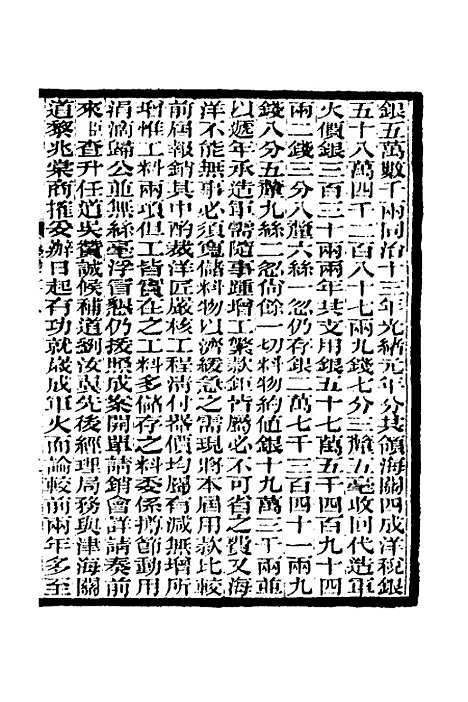 銀五萬數千兩同治十三年光緒元年分共領海關四成洋稅銀
五十八萬四千二百八十七兩九錢七分三釐五毫收回代造軍
火價銀三百三十兩兩年共支用銀五十七萬五千四百九十四
兩二錢三分八釐六絲一忽仍存銀二萬七千三百四十一兩九
錢八分五釐九絲二忽尙餘一切料物約值銀十九萬三千兩並
以遞年承造軍需隨事踵增工繁款鉅皆屬必不可省之費又海
洋不能無事必須儲料物以濟緩急之需現將本屆用款比較
前屆報銷其中酌裁洋匠嚴核工程淸付器價均屬有減無增所
增惟工料兩項但工皆實在之工料多儲存之料委係撙節動用
涓滴歸公並無絲毫浮冒懇仍援照成案開單請銷會詳請奏前
來臣查升任道吳贊誠候補道劉汝翼先後經理局務與津海關
道黎兆棠商搉妥辦日起有功就歲成軍火而論較前兩年多至